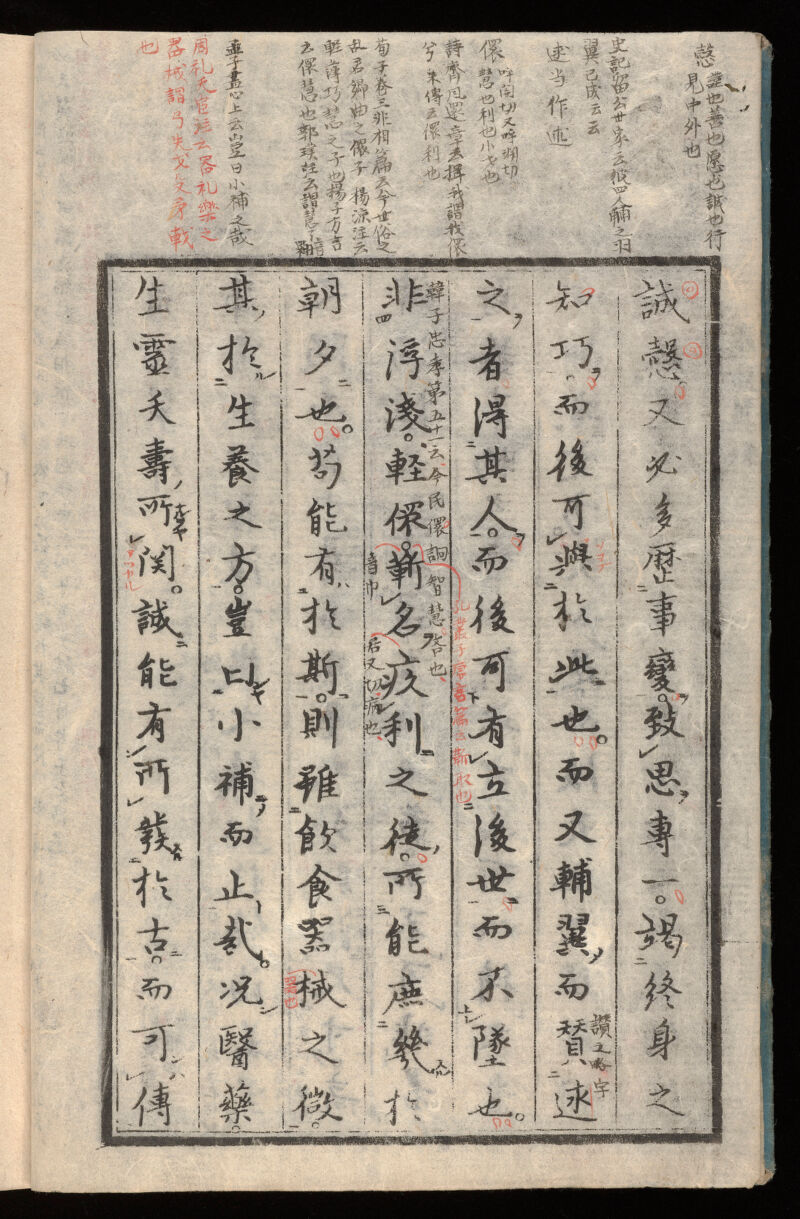 愨 謹也善也愿也誠也行
見中外也
史記留公世家云彼四人輔之羽
翼已成云云
逑当作述
儇 呼関切又呼淵切
慧也利也小才也
詩齊風還章
揖我謂我儇
兮朱傳云儇利也
荀子卷三非相篇云今世俗之
乱君鄉曲之儇子 楊倞注云
軽薄巧慧之子也揚子方言
云儇慧也郭璞註云謂慧了
孟子盡心上云豈曰小補之哉
周礼天官注云器礼樂之
器械謂弓矢戈殳矛戟
也
誠愨又必多歴事變致思專一竭終身之
知巧而後可與於此也而又輔翼而賛逑
讃之略字
之者得其人而後可有立後世而不墜也
韓子忠孝第五十一云今民儇詗智慧
非浮淺軽儇蘄名疾利之徒所能庶幾於
音巾
朝夕也苟能有於斯則雖飲食器械之微
其於生養之方豈止小補而止哉况醫藥
生靈夭壽所関誠能有所發於古而可傳